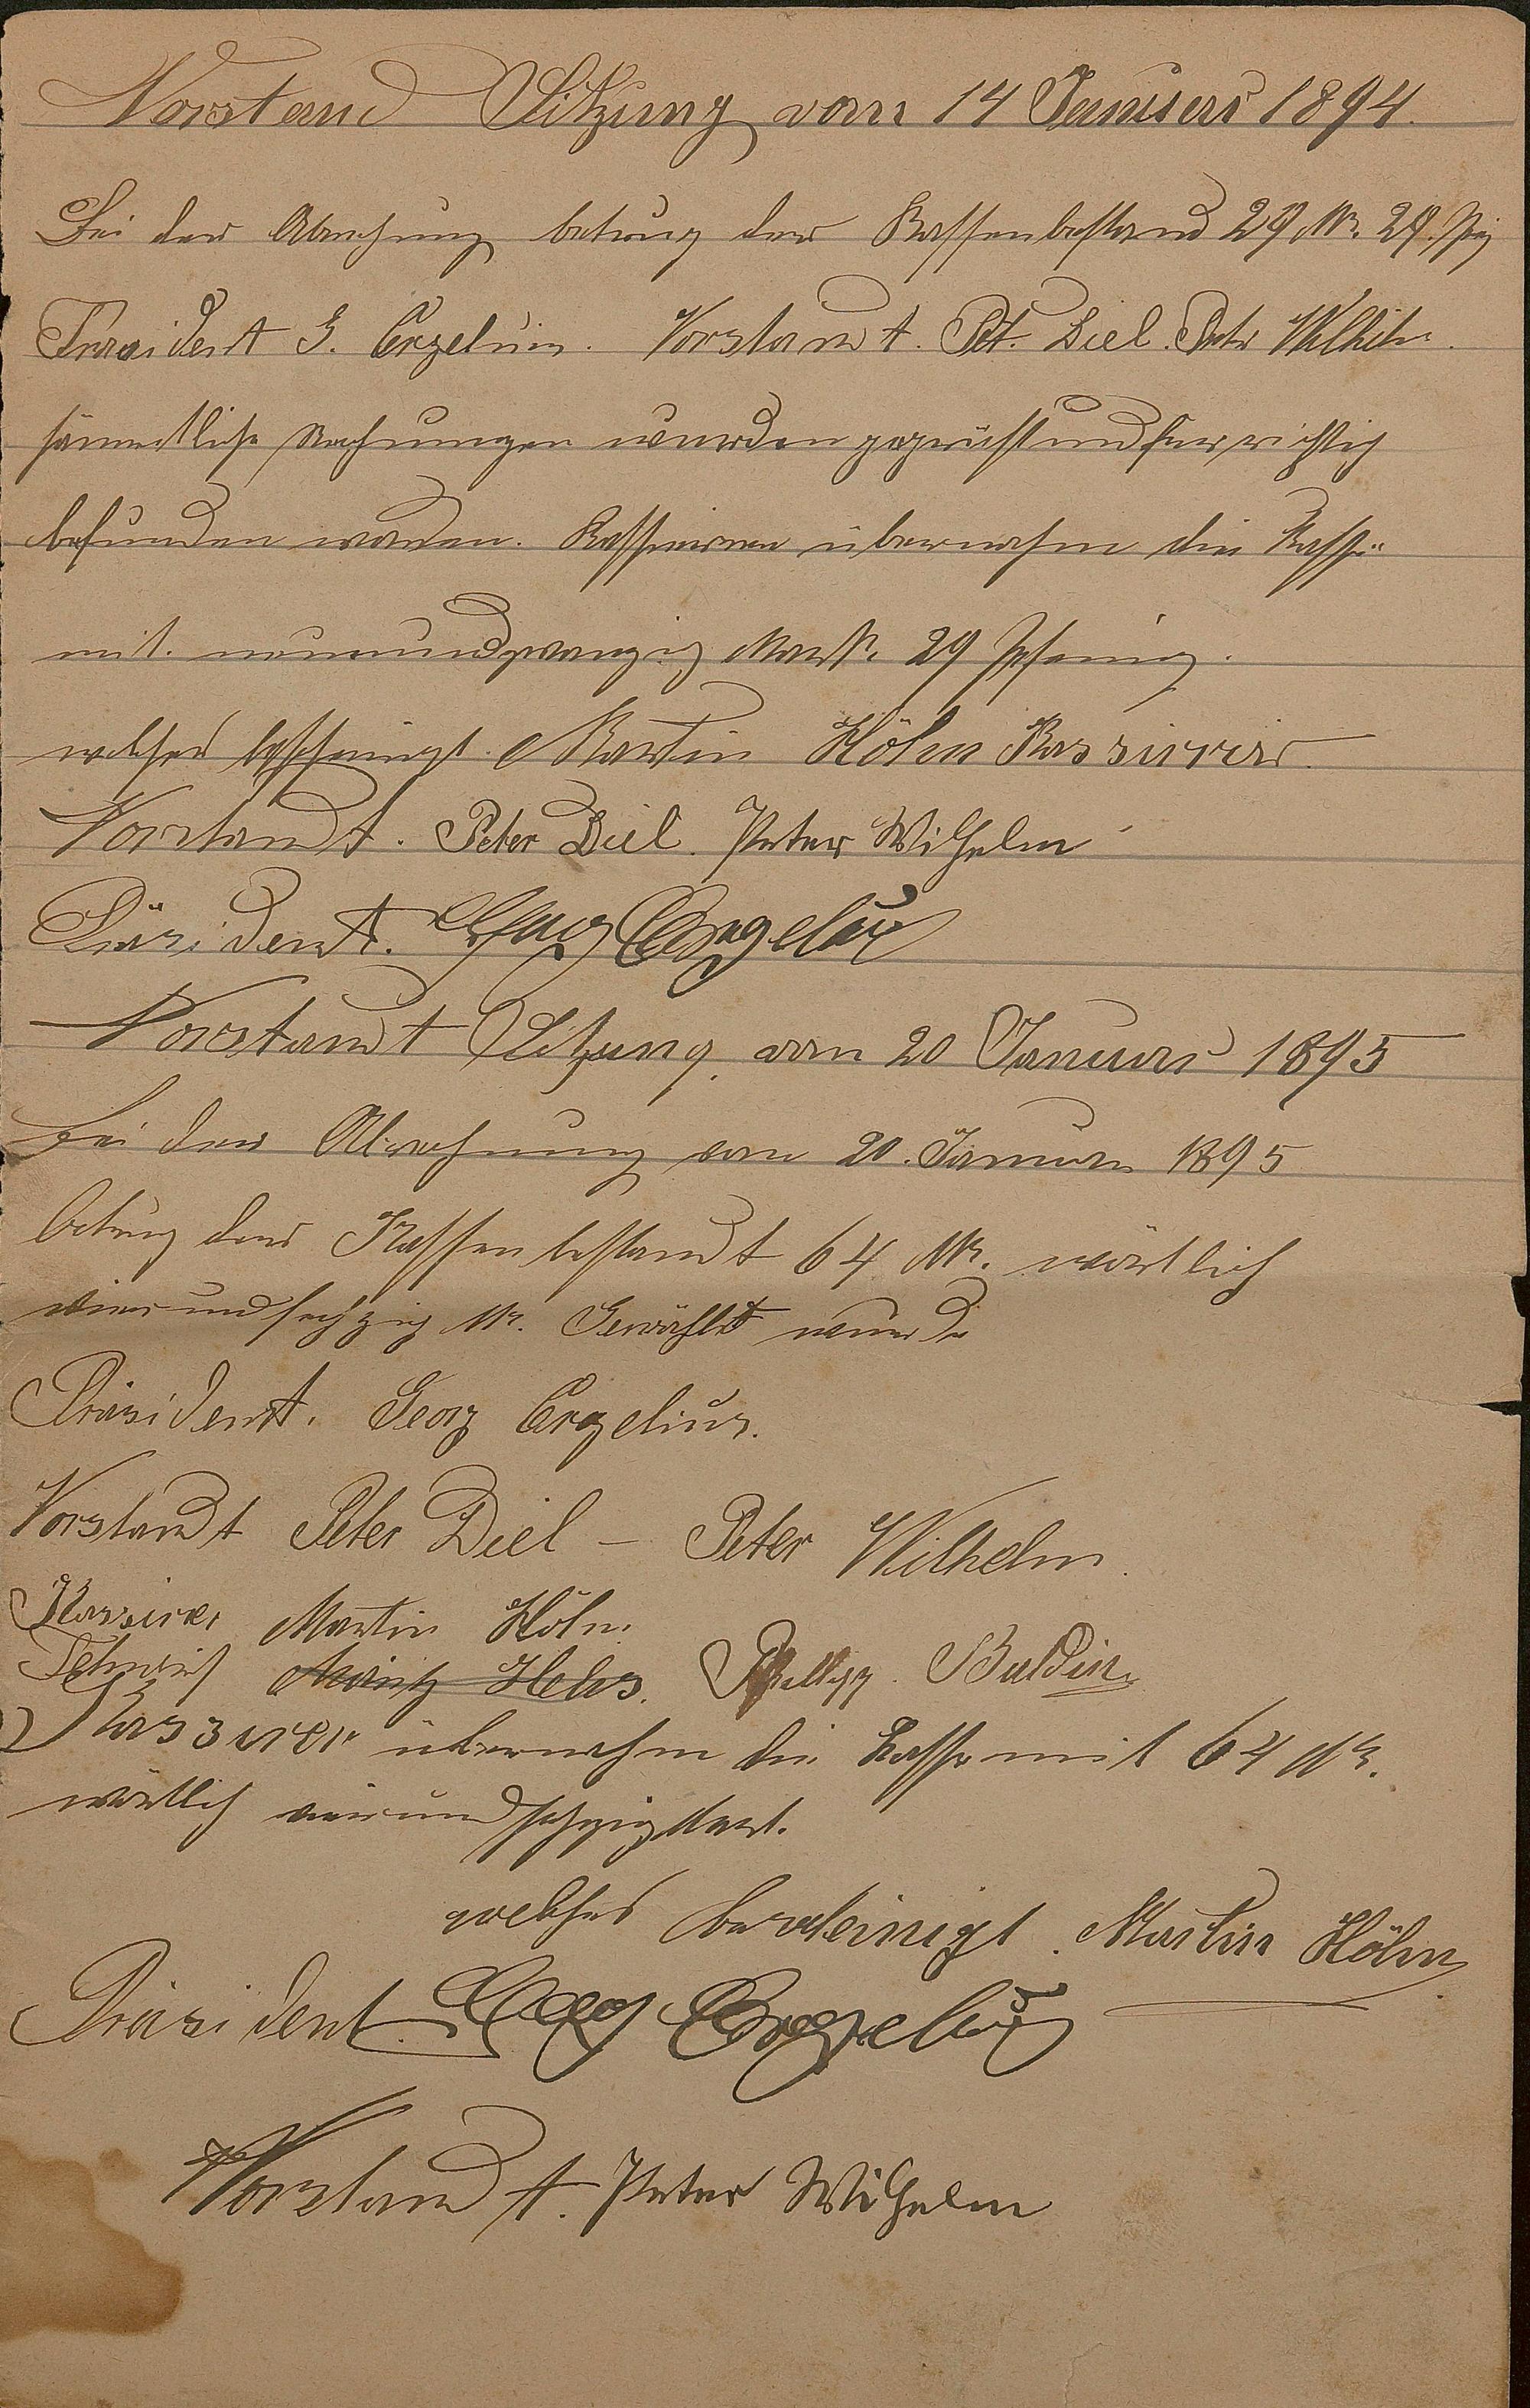 Vorstand Sitzung vom 14 Januar 1894.
Bei der Abrechnung betrug der Kassenbestand 29 M. 29. Pfg
Präsident G. Ergelius. Vorstandt. Pet. Diel. Peter Wilhelm.
sämmtliche Rechnungen wurden geprüft und für richtig
befunden worden. Kassierer übernahm die Kasse
mit. neunundzwanzig Mark. 29 Pfenig.
welches bescheinigt. Martin Höhn Kassirer.
Vorstandt. Peter Diel. Peter Wilhelm
Präsident. Georg Ergelius
Vorstandt Sitzung. vom 20 Januar 1895
Bei der Abrechnung vom 20. Januar 1895
betrug der Kassenbestandt 64 M. wörtlich
vierundsechzig M. Gewählt wurde
Präsident. Georg Ergelius.
Vorstandt Peter Diel – Peter Wilhelm.
Kassirer Martin Höhn.
Philipp. Baldin
Kassirer übernahm die Kasse mit 64 M.
wörtlich vierundsechzig Mark.
welches bescheinigt. Martin Höhn
Präsident. Georg Ergelius
Vorstandt. Peter Wilhelm